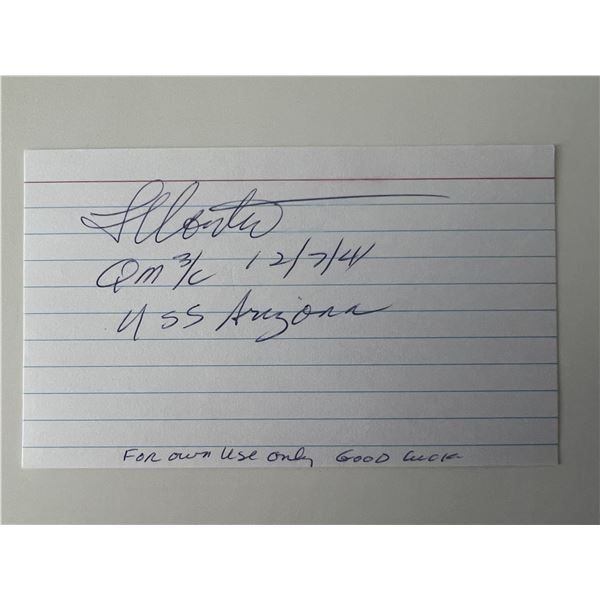 L Conter
QM 3/c 12/7/41
USS Arizona
For own use only Good Luck